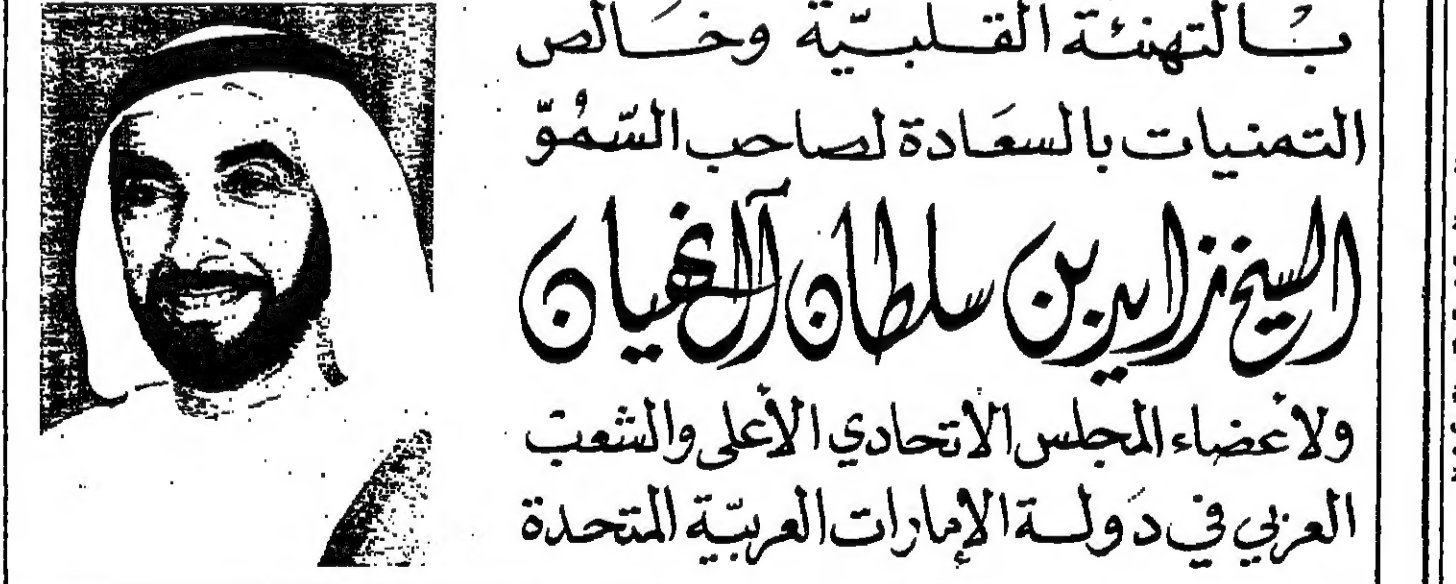 بالتهنئة القلبيّة وخالص
التمنيات بالسعَادة لصاحب السّمُوّ
الشيخ زايد بن سلطان آل نهيان
ولأعضاء المجلس الاتحادي الأعلى والشعب
العربي في دَولة الإمارات العربيّة المتحدة